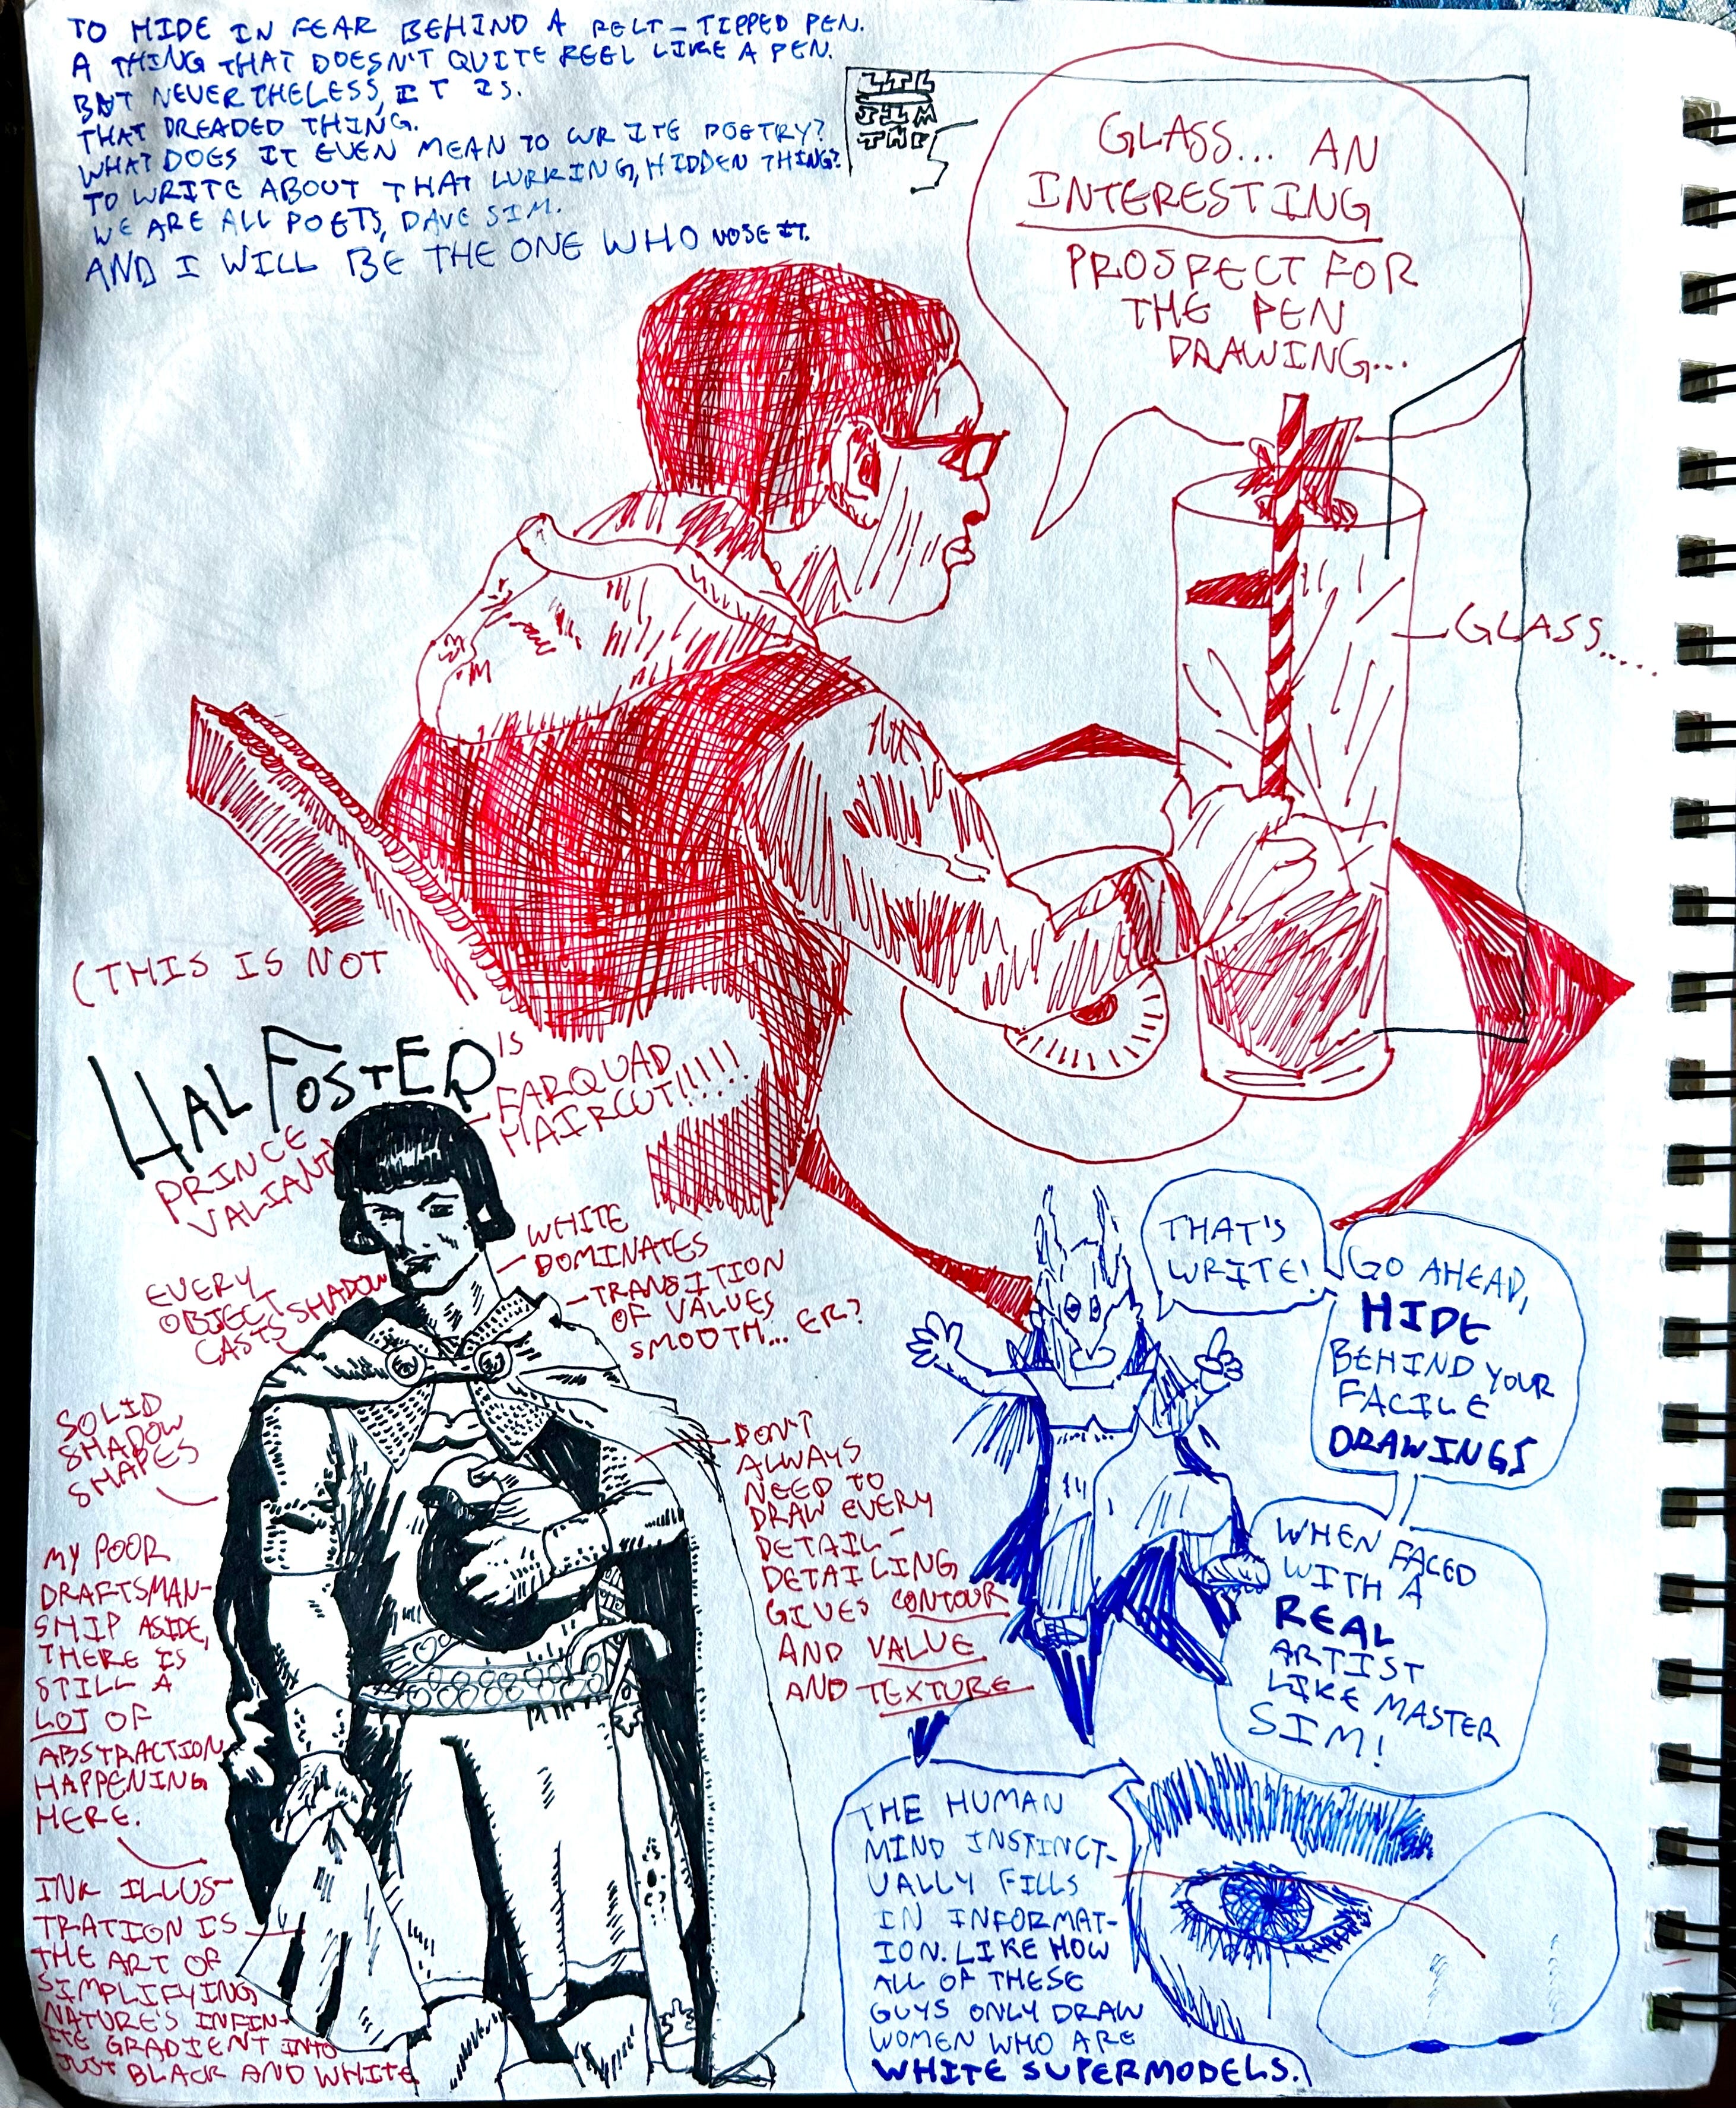 TO HIDE IN FEAR BEHIND A FELT-TIPPED PEN.
A THING THAT DOESN'T QUITE FEEL LIKE A PEN.
BUT NEVERTHELESS, IT IS.
THAT DREADED THING.
WHAT DOES IT EVEN MEAN TO WRITE POETRY?
TO WRITE ABOUT THAT LURKING, HIDDEN THING?
WE ARE ALL POETS, DAVE SIM.
AND I WILL BE THE ONE WHO NOSE IT.
LIL
SIM
THE
GLASS... AN
INTERESTING
PROSPECT FOR
THE PEN
DRAWING...
GLASS.....
(THIS IS NOT
HAL FOSTER
IS
FARQUAD
HAIRCUT!!!!!
PRINCE
VALIANT
WHITE
DOMINATES
TRANSITION
OF VALUES
SMOOTH... ER?
EVERY
OBJECT
CASTS SHADOW
SOLID
SHADOW
SHAPES
MY POOR
DRAFTSMAN-
SHIP ASIDE,
THERE IS
STILL A
LOT OF
ABSTRACTION
HAPPENING
HERE.
INK ILLUS-
TRATION IS
THE ART OF
SIMPLIFYING
NATURE'S INFIN-
ITE GRADIENT INTO
JUST BLACK AND WHITE
DON'T
ALWAYS
NEED TO
DRAW EVERY
DETAIL-
DETAILING
GIVES CONTOUR
AND VALUE
AND TEXTURE
THAT'S
WRITE!
GO AHEAD,
HIDE
BEHIND YOUR
FACILE
DRAWINGS
WHEN FACED
WITH A
REAL
ARTIST
LIKE MASTER
SIM!
THE HUMAN
MIND INSTINCT-
UALLY FILLS
IN INFORMAT-
ION. LIKE HOW
ALL OF THESE
GUYS ONLY DRAW
WOMEN WHO ARE
WHITE SUPERMODELS.